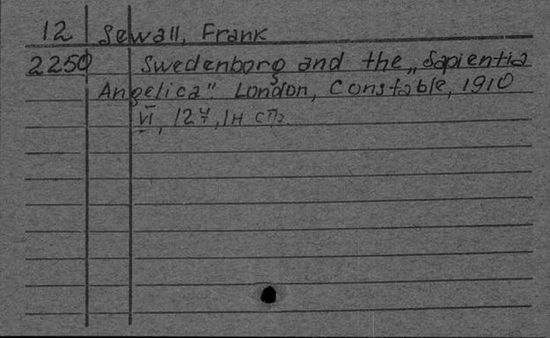 12 Sewall, Frank
2250 Swedenborg and the „Sapientia
Angelica“. London, Constable, 1910
VI, 127, 1н стр.